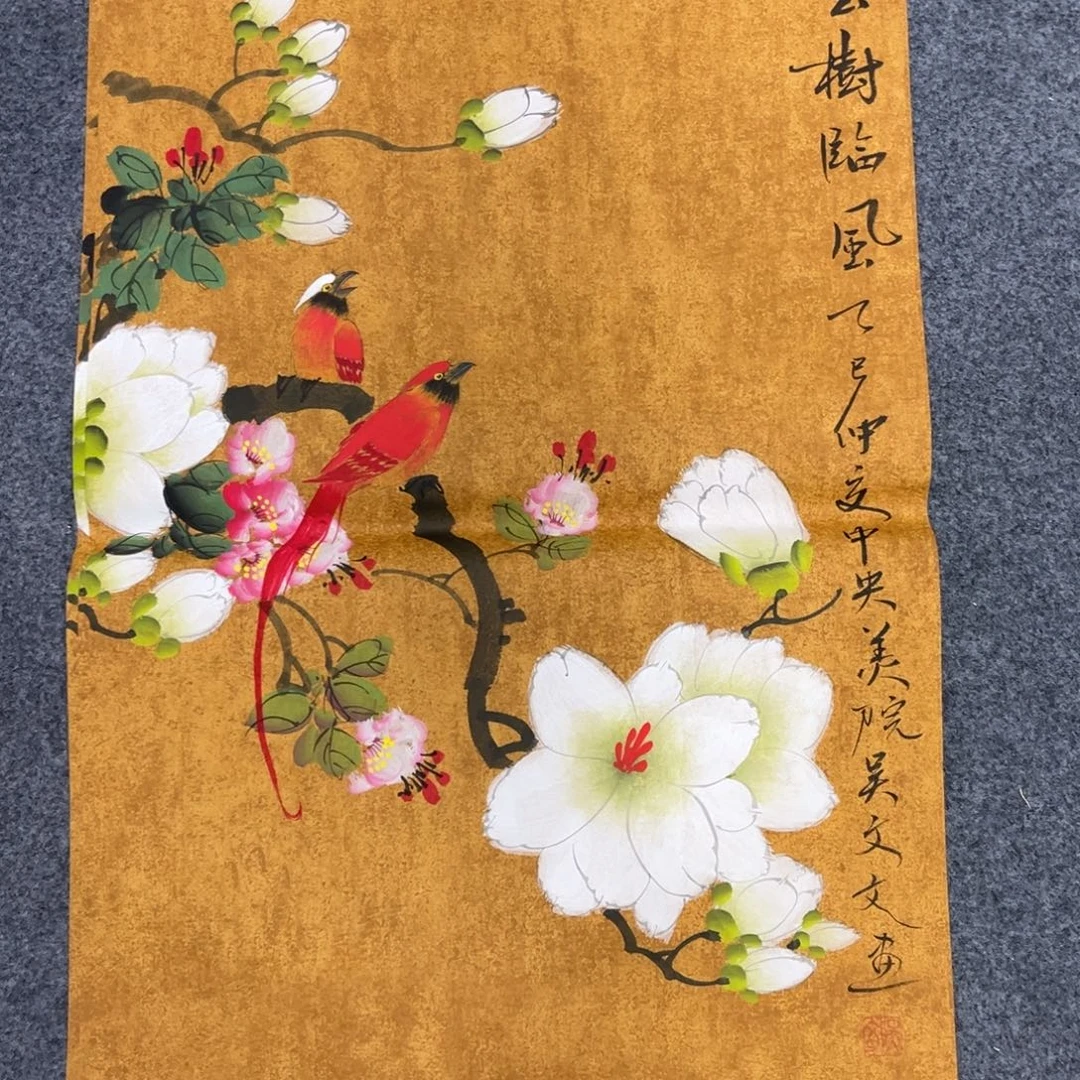 樹臨風 乙巳仲夏中央美院吴文文畫